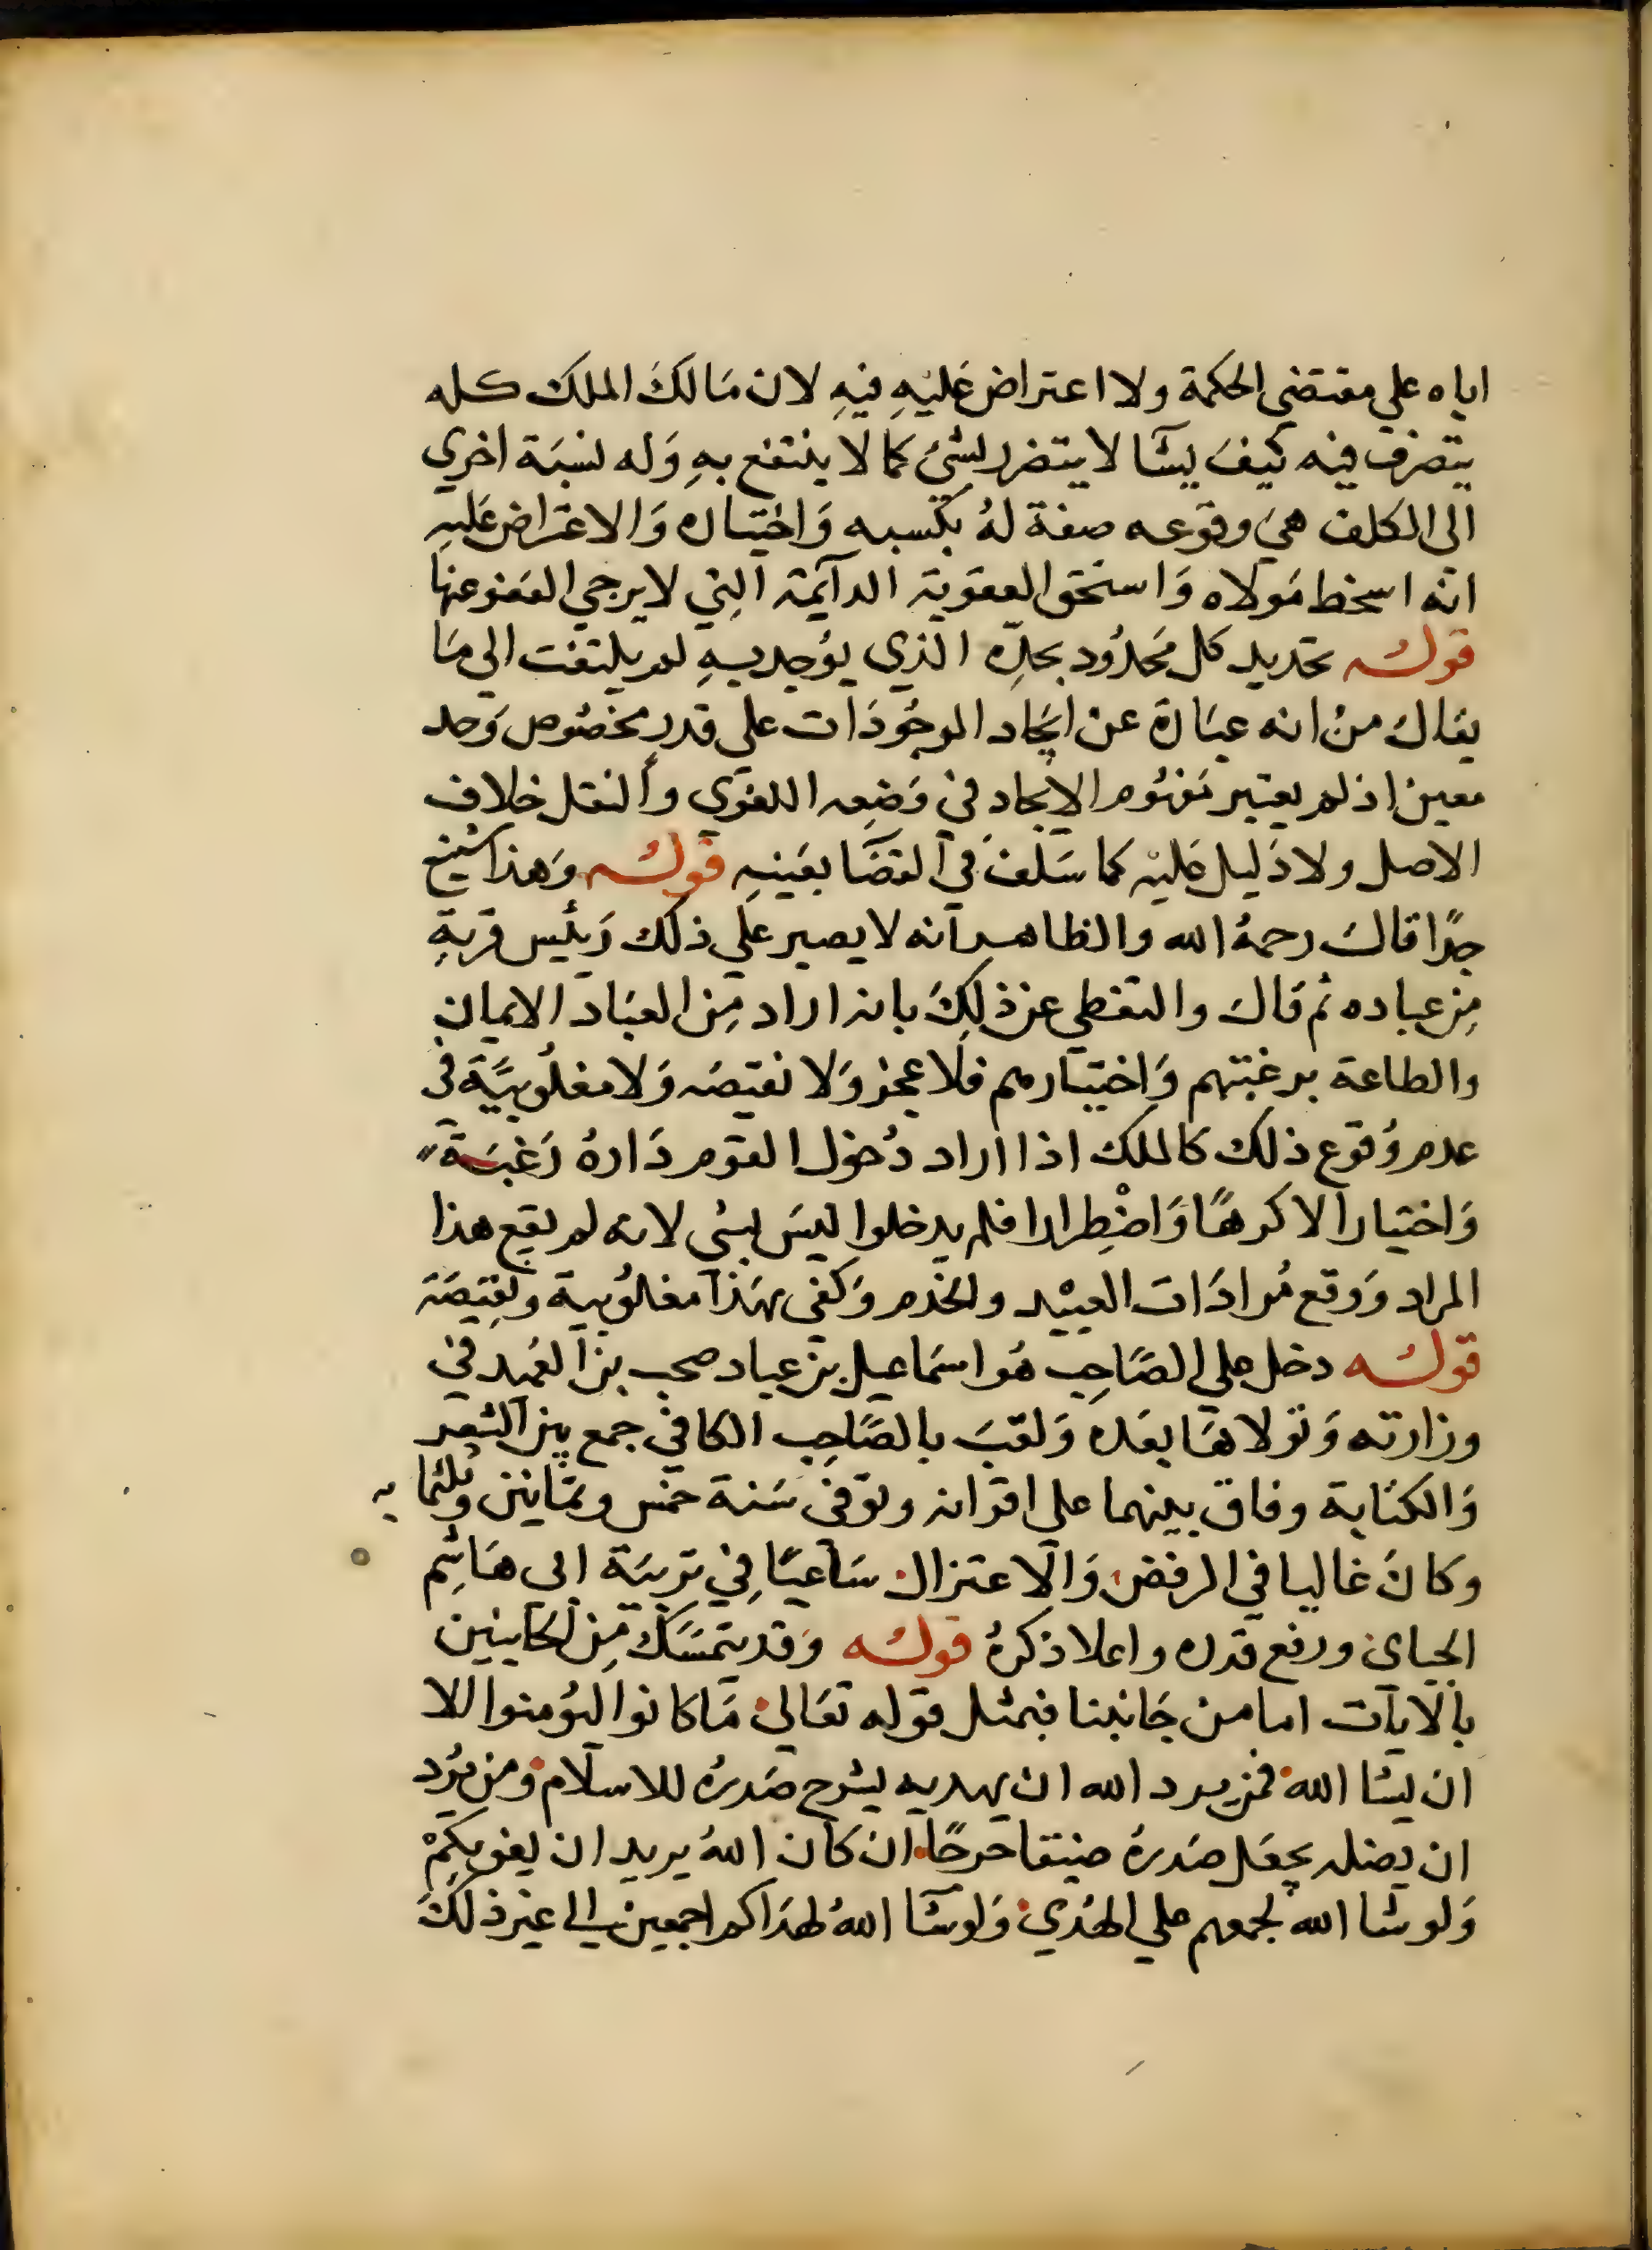 اياه علي مقتضي الحكمة ولا اعتراض عَليْهِ فيهِ لان مَالكَ الملك كله
يتصرف فيه كيفَ يشَآ لا يتضرر بشئ كما لا ينتفع بهِ وَله نسبَة اخري
الي المكلف هيَ وقوعه صفة لهُ بكسبه وَاختياره وَالاعتراض عَليهِ
انه اسخط مَولاه وَاستحق العقوبة الدآيمة التِي لا يرجي العَفو عنها
قولـه تحديد كل مَحدُود بحدِّه الذي يوُجد بهِ لم يلتفت الي مَا
يقال منْ انه عبَارة عن ايجَاد الموجُودَات علي قدرٍ مخصُوص وَحد
معين اذ لم يعتبر مَفهُوم الايجاد في وَضعِه اللغوي وَالنقل خلاف
الاصل ولا دَليل عَليْه كما سَلفَ في القضَا بعَينهِ قولـه وَهذا شنيع
جدًا قالَ رحمهُ الله والظاهر انه لا يصبر علي ذلك رَئيس قريةِ
مِن عباده ثم قالَ والتفصي عن ذلِكَ بانه اراد مِن العبَاد الايمان
والطاعة برغبتهم وَاختيَارهم فلا عجز وَلا نقيصَه وَلا مغلُوبيَّة في
عدم وُقوع ذلك كالملك اذا اراد دُخول القوم دَارهُ رَغبَة
وَاختيارا لا كرهًا وَاضْطِرارا فلم يدخلوا ليسَ بشي لانه لم يقع هذا
المراد وَوَقع مُرادَات العبيْد والخدم وَكفى بهَذا مغلُوبية ونقِيصَة
قولـه دخل علي الصَّاحِب هُو اسمَاعيل بن عباد صحب بن العَميد في
وزارته وَتولاهَا بعَده وَلقبَ بالصَّاحِب الكافي جمع بين الشعر
وَالكتَابة وفاق بينهما علي اقرانه وتوفى سَنة خمس وثمَانين وثلثماية
وَكانَ غاليا في الرفض وَالاعتزال سَاعيًا فِي تربيَة ابى هَاشِم
الجباى ورفع قدره واعلا ذكرهُ قولـه وَقد يتمسَك مِن الجَانِبين
بالايات اما من جَانبنا فبمثل قوله تعَالىَ مَا كانوا ليؤمنوا الا
ان يشا الله فمن يرد الله ان يهديه يشرح صَدرهُ للاسلام ومن يُرد
ان يضله يجعَل صَدرهُ ضيقا حَرجًا ان كَان اللهُ يريد ان يغويكمْ
وَلو شا الله لجمعهم علي الهُدي وَلو شَآ اللهُ لهَدَاكم اجمعين الي غير ذلكَ